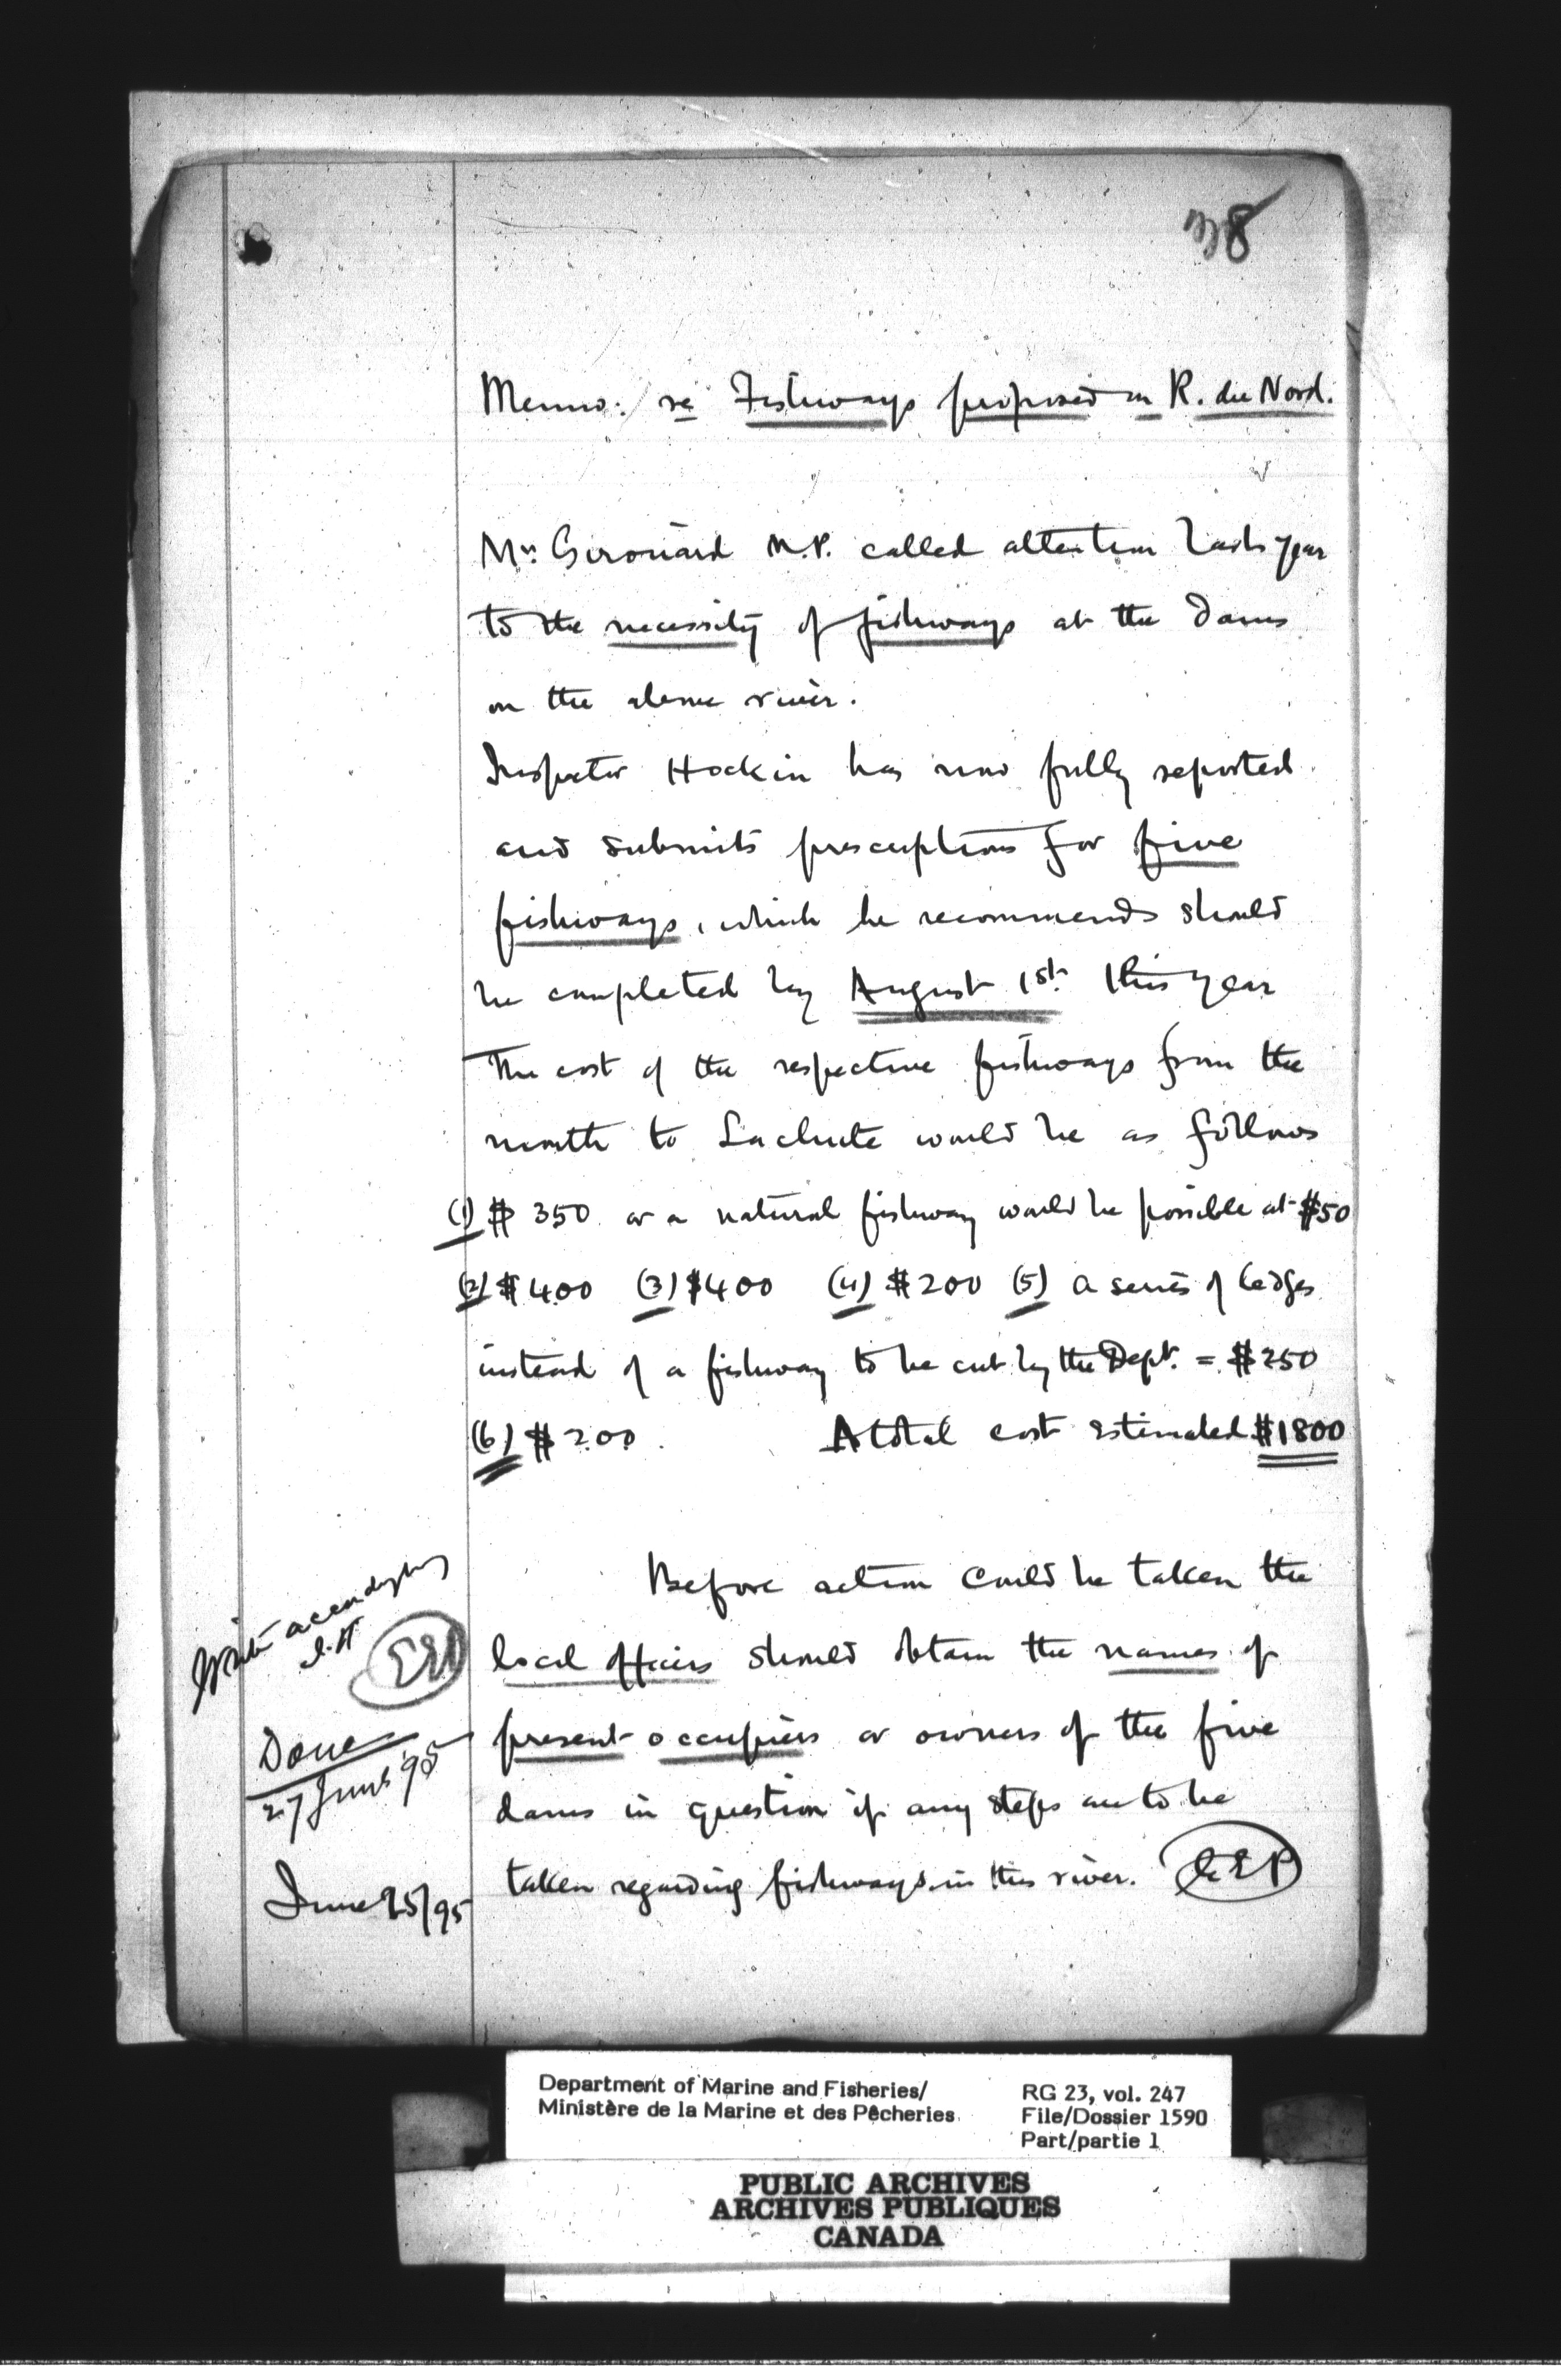 38
Memo: re Fishways proposed on R. du Nord.
Mr. Girouard M.P. called attention last year
to the necessity of fishways at the dams
on the above river.
Inspector Hockin has now fully reported
and submits prescriptions for five
fishways, which he recommends should
be completed by August 1st. this year
The cost of the respective fishways from the
mouth to Lachute would be as follows
(1) $350 or a natural fishway would be possible at $50
(2) $400 (3) $400 (4) $200 (5) a series of ledges
instead of a fishway to be cut by the Dept. = $250
(6) $200. A total cost estimated $1800
Before action could be taken the
local officers should obtain the names of
present occupiers or owners of the five
dams in question if any steps are to be
taken regarding fishways in this river. EEP
Write accordingly
Done
27 June '95
June 25/95
Department of Marine and Fisheries/
Ministère de la Marine et des Pêcheries
RG 23, vol. 247
File/Dossier 1590
Part/partie 1
PUBLIC ARCHIVES
ARCHIVES PUBLIQUES
CANADA